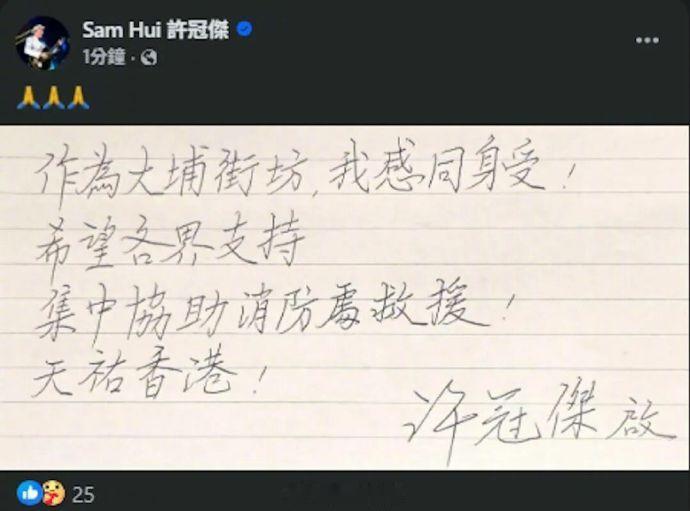 Sam Hui 許冠傑
1分鐘 ·
作為大埔街坊,我感同身受!
希望各界支持
集中協助消防處救援!
天祐香港!
許冠傑 啟
25